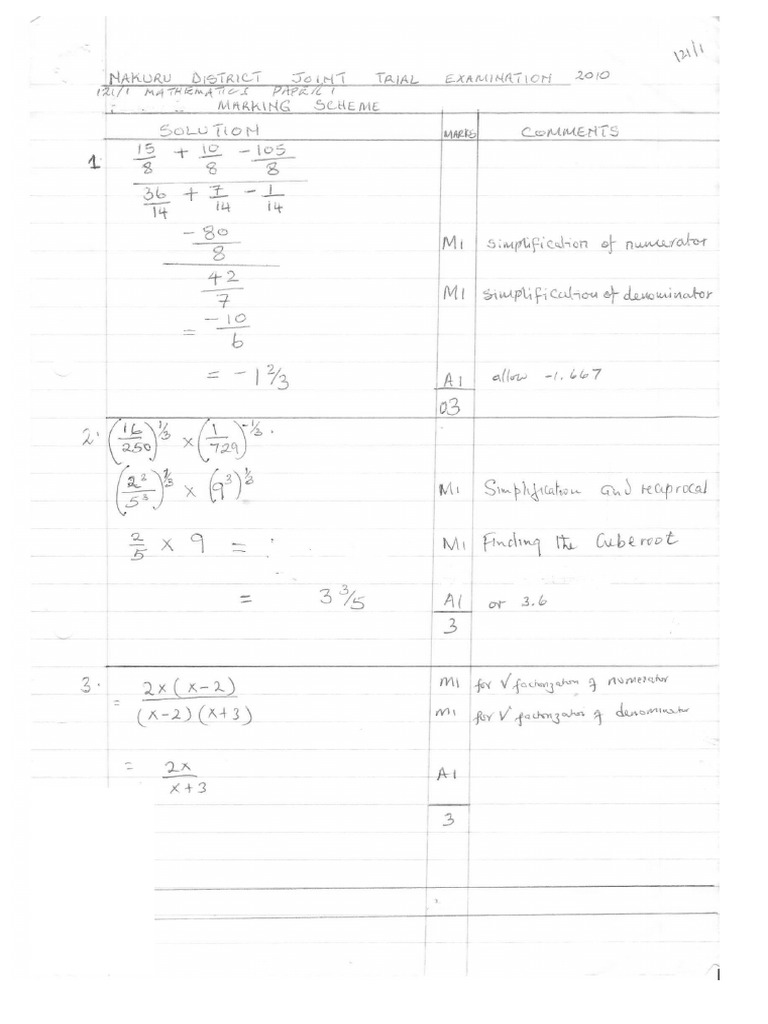 121/1
NAKURU DISTRICT JOINT TRIAL EXAMINATION 2010
121/1 MATHEMATICS PAPER 1
MARKING SCHEME
SOLUTION MARKS COMMENTS
1. 15/8 + 10/8 - 105/8
36/14 + 7/14 - 1/14
-80/8 M1 simplification of numerator
42/7 M1 simplification of denominator
= -10/6
= -1 2/3 A1 allow -1.667
03
2. (16/250)^1/3 × (1/729)^-1/3
(2^3/5^3)^1/3 × (9^3)^1/3 M1 Simplification and reciprocal
2/5 × 9 = M1 Finding the Cuberoot
= 3 3/5 A1 or 3.6
3
3. = 2x(x-2) M1 for √ factorization of numerator
(x-2)(x+3) M1 for √ factorization of denominator
= 2x/x+3 A1
3
1